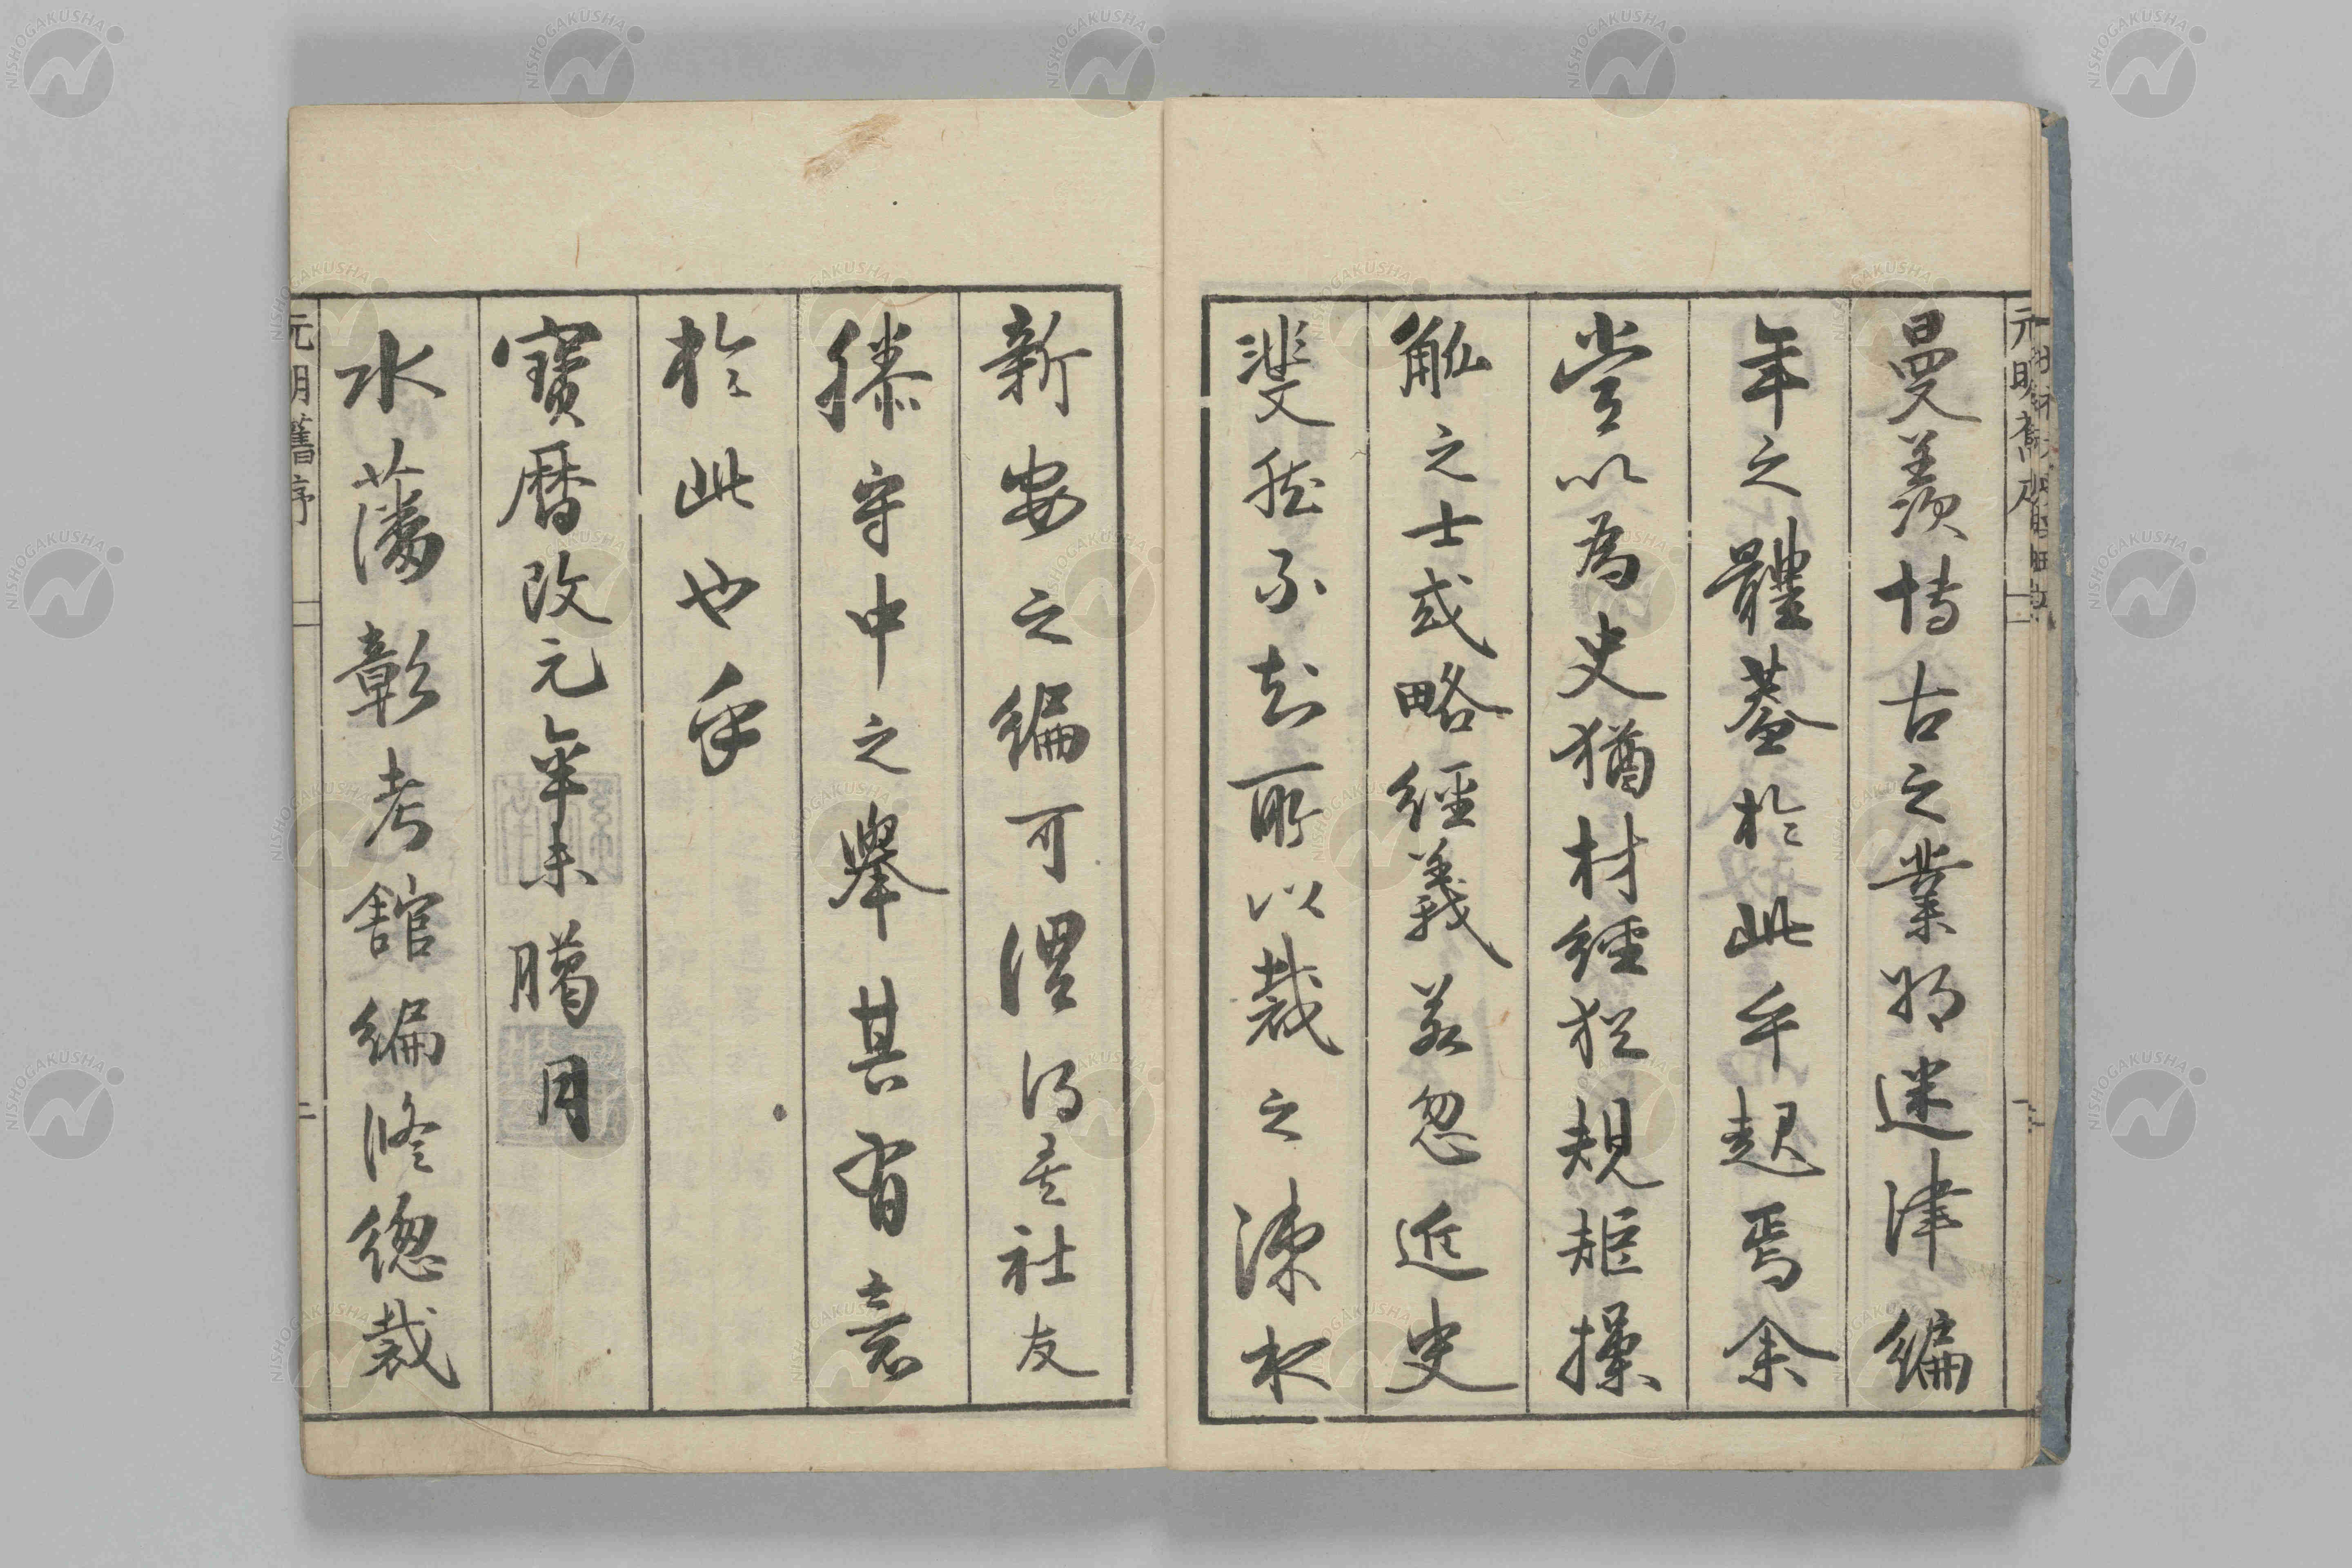 曼羨博古之業将迷津編
年之體蓋於此乎起焉余
嘗以為史猶材經猶規矩操
觚之士或略經義若忽近史
斐然不知所以裁之涑水
新安之編可謂得矣社友
滕守中之舉其有意
於此也乎
寶暦改元辛未臘月
水藩彰考舘編修總裁
元明舊序 二
NISHOGAKUSHA